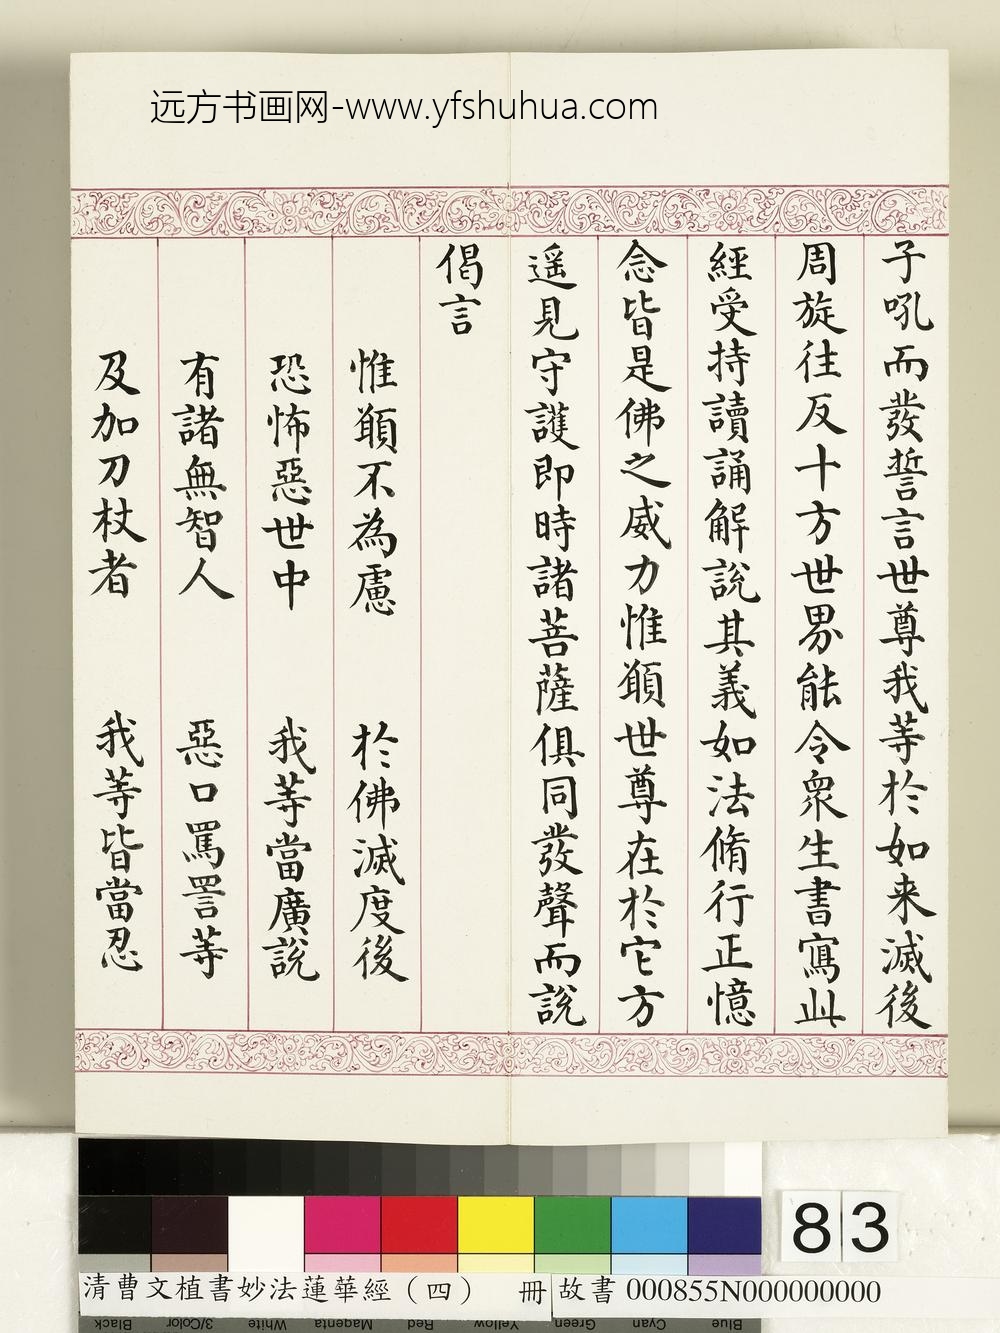 远方书画网-www.yfshuhua.com
子吼而發誓言世尊我等於如来滅後
周旋往反十方世界能令衆生書寫此
經受持讀誦解說其義如法脩行正憶
念皆是佛之威力惟願世尊在於它方
遥見守護即時諸菩薩俱同發聲而說
偈言
惟願不為慮 於佛滅度後
恐怖惡世中 我等當廣說
有諸無智人 惡口罵詈等
及加刀杖者 我等皆當忍
83
清曹文植書妙法蓮華經（四） 冊 故書 000855N000000000
Black 3/Color White Magenta Red Yellow Green Cyan Blue